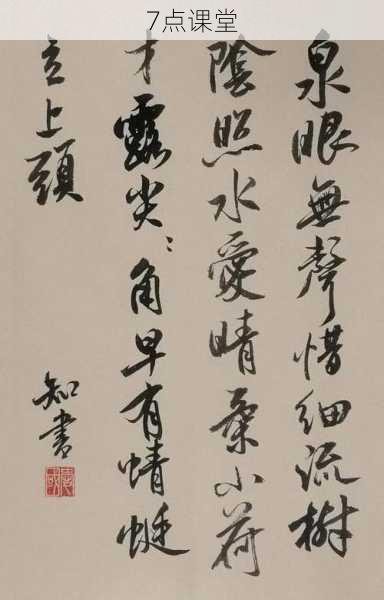 7点课堂
泉眼無聲惜細流樹
陰照水愛晴柔小荷
才露尖〻角早有蜻蜓
立上頭
知書